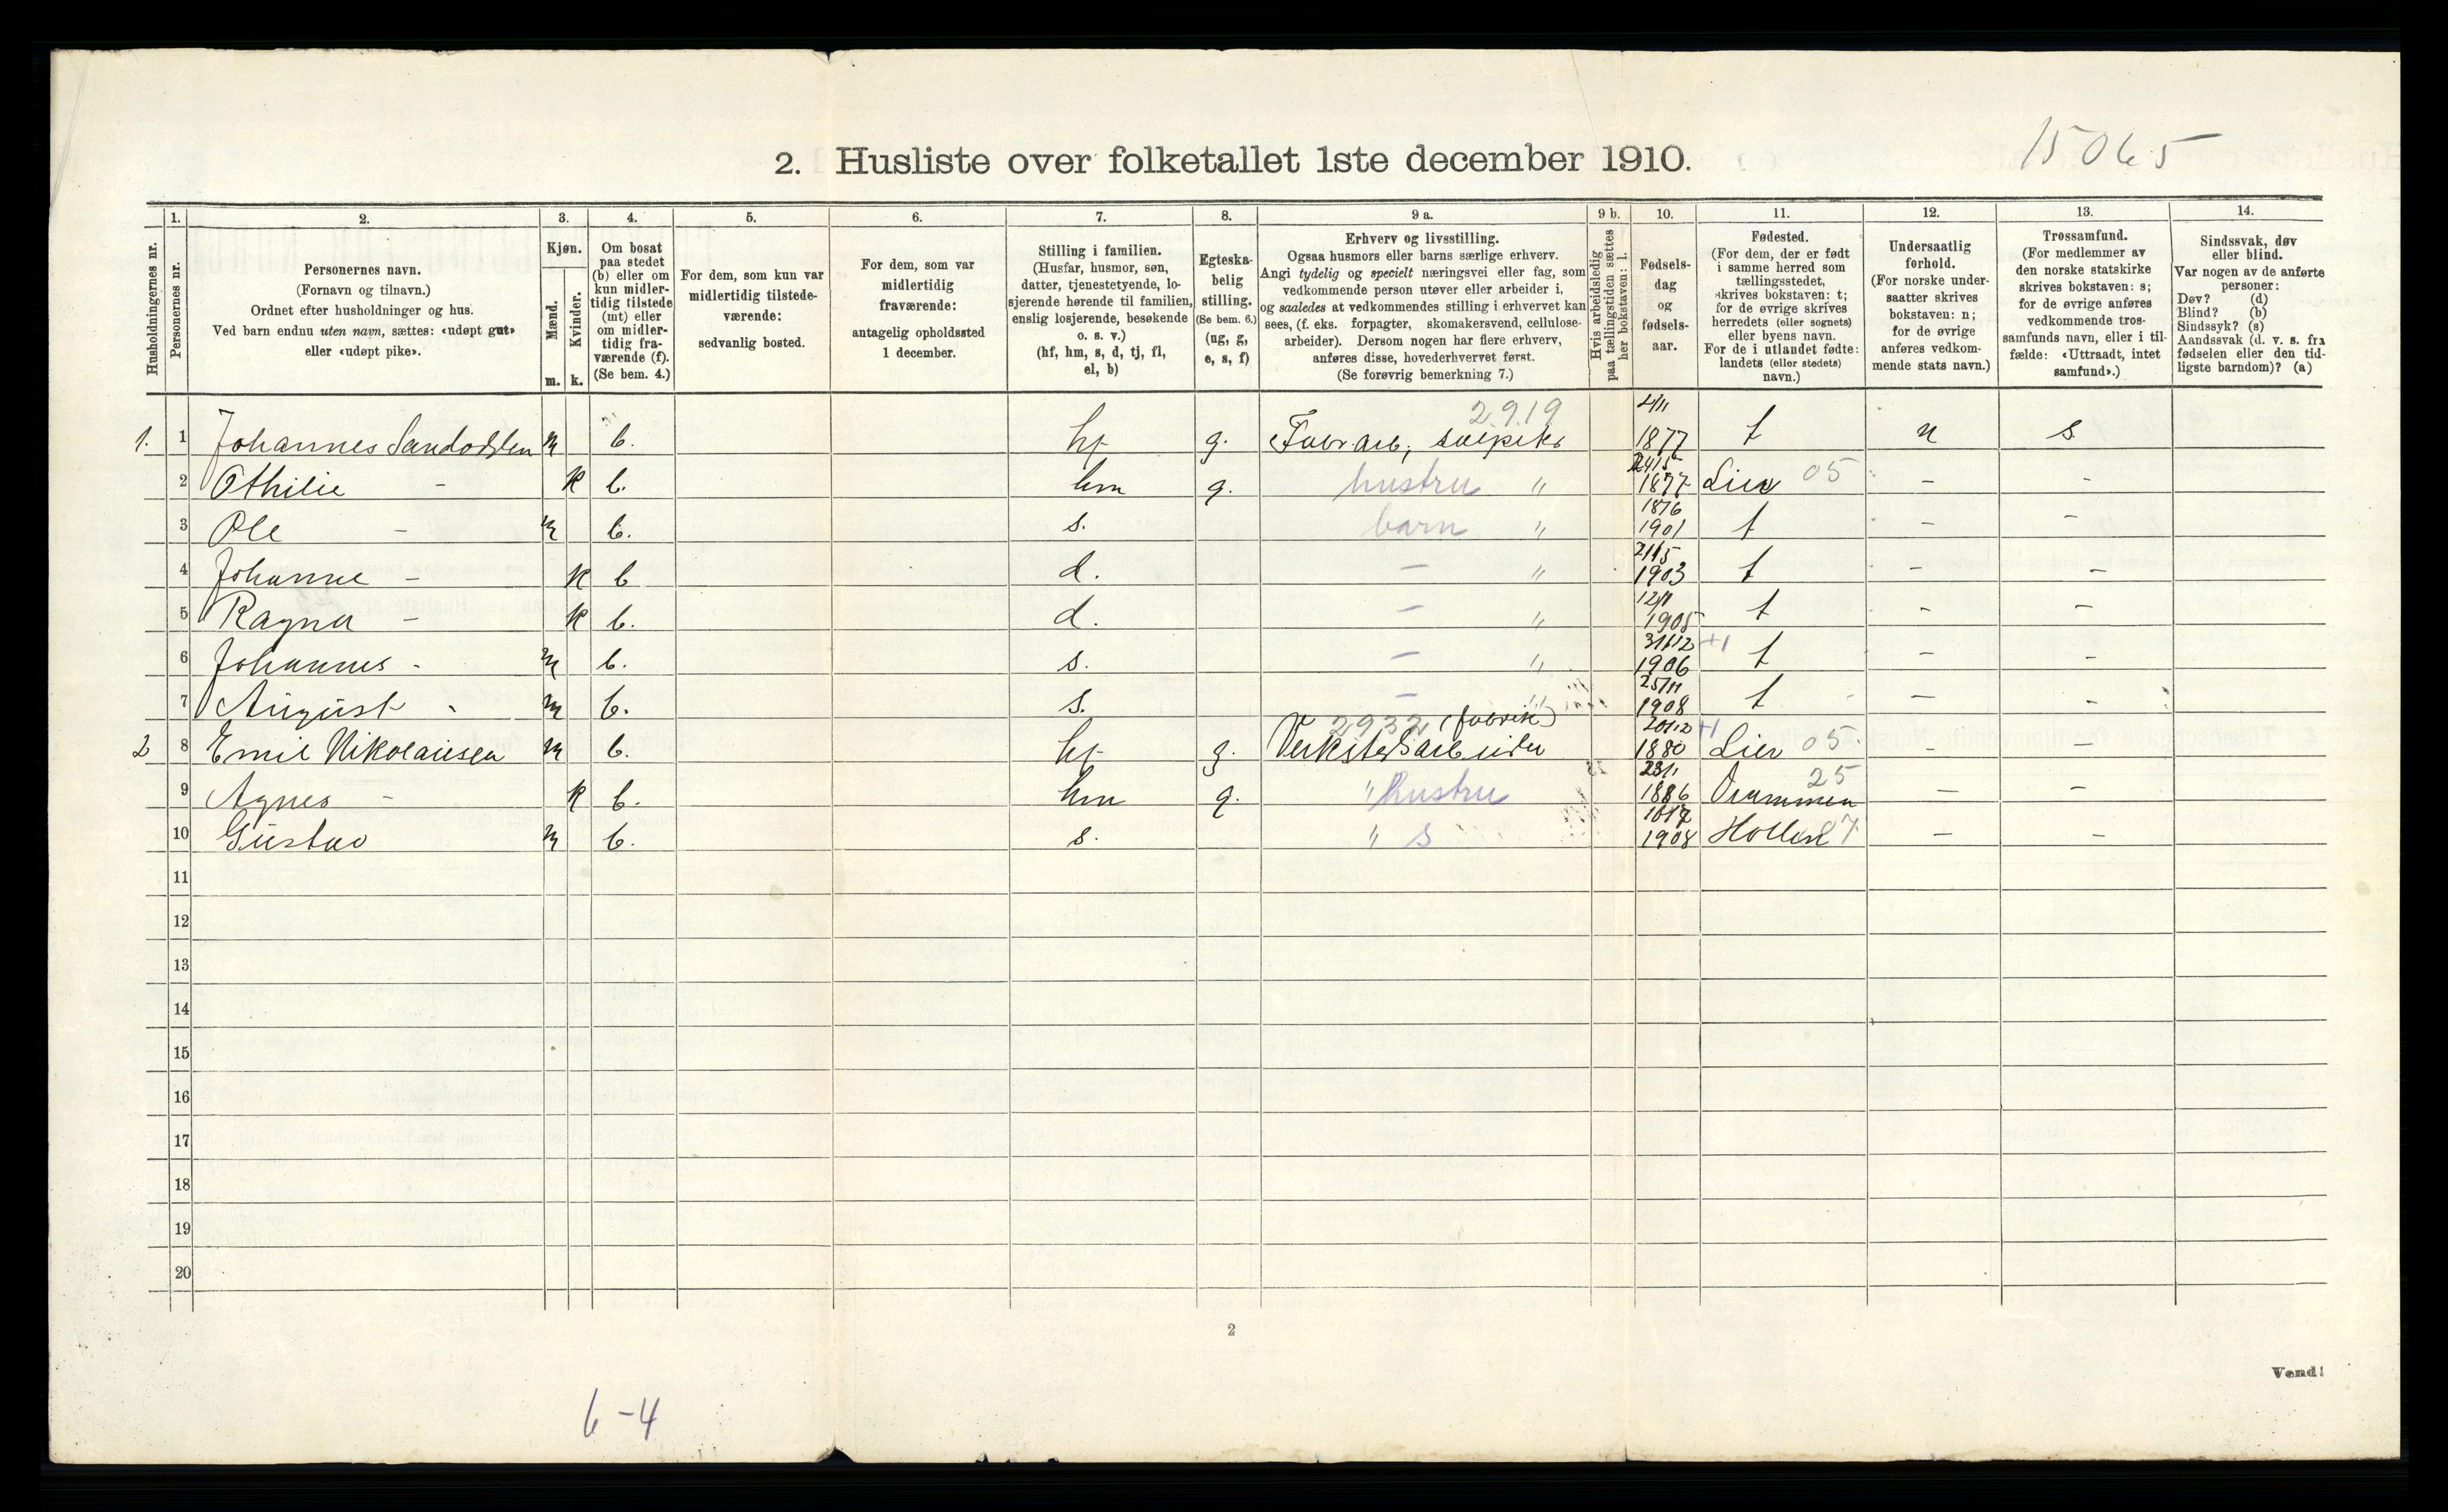 15065
2. Husliste over folketallet 1ste december 1910.
1. 2. 3. 4. 5. 6. 7. 8. 9 a. 9 b. 10. 11. 12. 13. 14.
Husholdningernes nr.
Personernes nr.
Personernes navn.
(Fornavn og tilnavn.)
Ordnet efter husholdninger og hus.
Ved barn endnu uten navn, sættes: «udøpt gut»
eller «udøpt pike».
Kjøn.
Mænd.
Kvinder.
m. k.
Om bosat
paa stedet
(b) eller om
kun midler-
tidig tilstede
(mt) eller
om midler-
tidig fra-
værende (f).
(Se bem. 4.)
For dem, som kun var
midlertidig tilstede-
værende:
sedvanlig bosted.
For dem, som var
midlertidig
fraværende:
antagelig opholdssted
1 december.
Stilling i familien.
(Husfar, husmor, søn,
datter, tjenestetyende, lo-
sjerende hørende til familien,
enslig losjerende, besøkende
o. s. v.)
(hf, hm, s, d, tj, fl,
el, b)
Egteska-
belig
stilling.
(Se bem. 6.)
(ug, g,
e, s, f)
Erhverv og livsstilling.
Ogsaa husmors eller barns særlige erhverv.
Angi tydelig og specielt næringsvei eller fag, som
vedkommende person utøver eller arbeider i,
og saaledes at vedkommendes stilling i erhvervet kan
sees, (f. eks. forpagter, skomakersvend, cellulose-
arbeider). Dersom nogen har flere erhverv,
anføres disse, hovederhvervet først.
(Se forøvrig bemerkning 7.)
Hvis arbeidsledig
paa tællingstiden sættes
her bokstaven: l.
Fødsels-
dag
og
fødsels-
aar.
Fødested.
(For dem, der er født
i samme herred som
tællingsstedet,
skrives bokstaven: t;
for de øvrige skrives
herredets (eller sognets)
eller byens navn.
For de i utlandet fødte:
landets (eller stedets)
navn.)
Undersaatlig
forhold.
(For norske under-
saatter skrives
bokstaven: n;
for de øvrige
anføres vedkom-
mende stats navn.)
Trossamfund.
(For medlemmer av
den norske statskirke
skrives bokstaven: s;
for de øvrige anføres
vedkommende tros-
samfunds navn, eller i til-
fælde: «Uttraadt, intet
samfund».)
Sindssvak, døv
eller blind.
Var nogen av de anførte
personer:
Døv? (d)
Blind? (b)
Sindssyk? (s)
Aandssvak (d. v. s. fra
fødselen eller den tid-
ligste barndom)? (a)
2.9.19
1. 1 Johannes m b. hf g. 1877 t n s
2 Othilie - k b. hm g. hustru " 1877 Lier 05 - -
3 Ole - m b. s. barn " 1901 t - -
4 Johanne - k b d. - " 1903 t - -
5 Ragna - k b. d. - " 1905 t - -
6 Johannes - m b. s. - " 31/12 1906 +1 t - -
7 August - m b. s. - " 25/11 1908 t - -
2932 (fabrik)
2 8 Emil Nikolaisen m b. hf g. Verkstedsarbeider 1880 +1 Lier 05 - -
9 Agnes - k b. hm g. " hustru 1886 Drammen 25 - -
10 Gustav m b. s. " s 1908 - -
11
12
13
14
15
16
17
18
19
20
2
Vend!
6-4